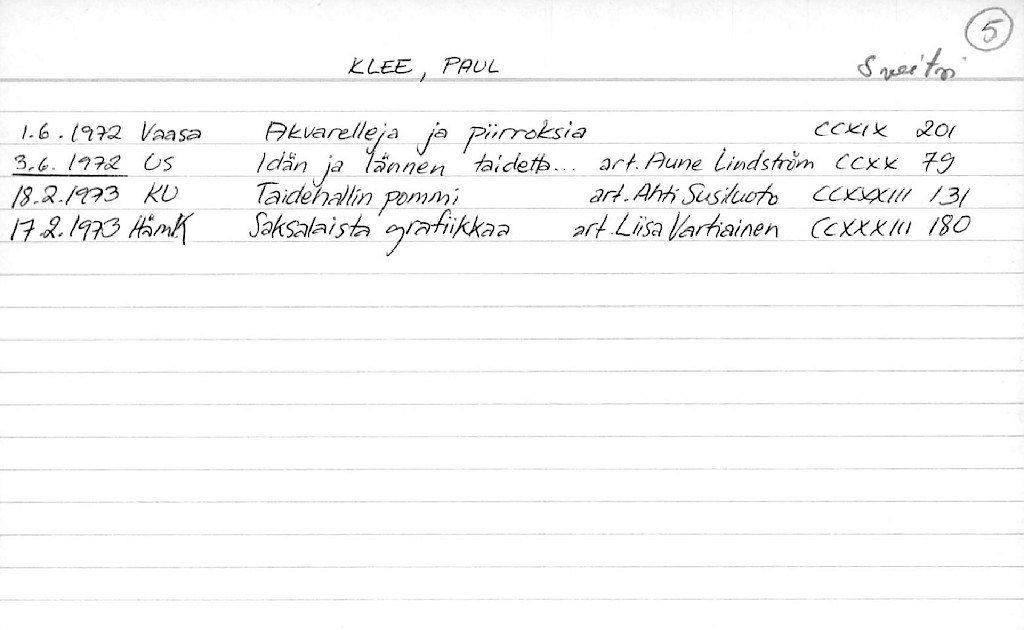 5
KLEE, PAUL Sveitsi
1.6.1972 Vaasa Akvarelleja ja piirroksia CCXIX 201
3.6.1972 US Idän ja lännen taidetta... art. Aune Lindström CCXX 79
18.2.1973 KU Taidehallin pommi art. Ahti Susiluoto CCXXXIII 131
17.2.1973 HämK Saksalaista grafiikkaa art. Liisa Vartiainen CCXXXIII 180